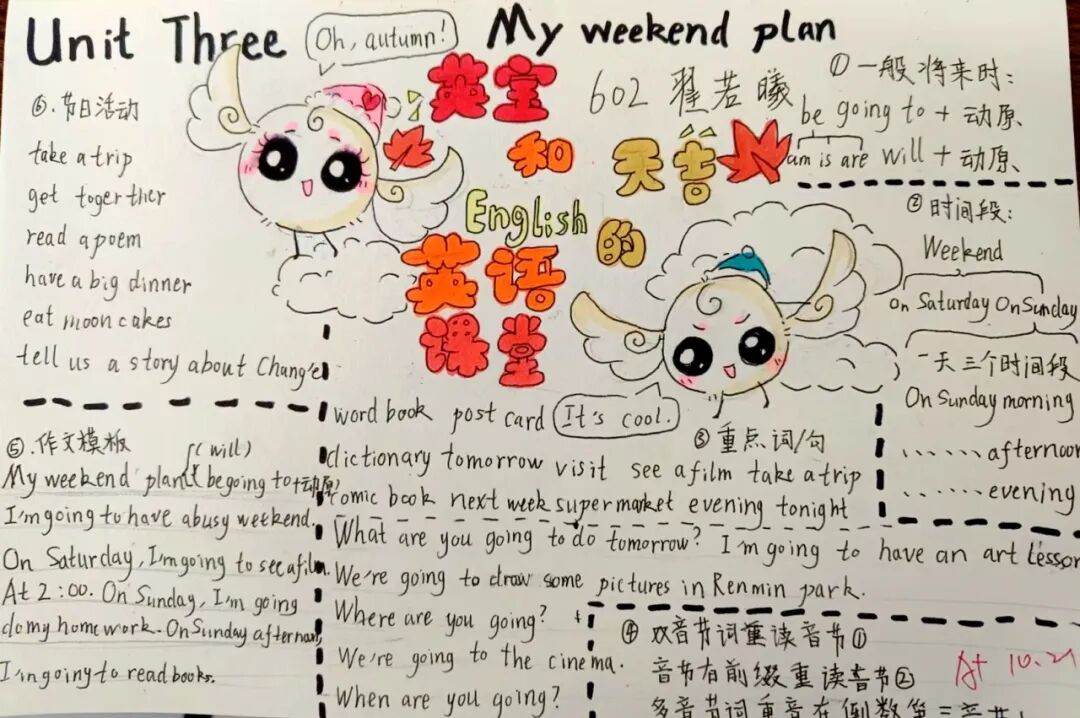 Unit Three My weekend plan
Oh, autumn!
英宝
和天音
English
的
英语
课堂
602 翟若曦
①一般将来时:
be going to + 动原、
am is are will + 动原、
②时间段:
Weekend
on Saturday On Sunday
一天三个时间段
On Sunday morning
......afternoon
......evening
⑥.节日活动
take a trip
get togerther
read a poem
have a big dinner
eat moon cakes
tell us a story about Chang'e
It's cool.
③重点词/句
word book post card
dictionary tomorrow visit see a film take a trip
comic book next week supermarket evening tonight
What are you going to do tomorrow? I'm going to have an art lesson
We're going to draw some pictures in Renmin park.
Where are you going?
We're going to the cinema.
When are you going?
④双音节词重读音节①
音节有前缀重读音节②
多音节词重音在倒数第三音节
At 10.21
⑤.作文模板
(will)
My weekend plan begoing to+动原)
I'm going to have a busy weekend.
On Saturday, I'm going to see a film.
At 2:00. On Sunday, I'm going
do my homework. On Sunday afternoon,
I'm going to read books.